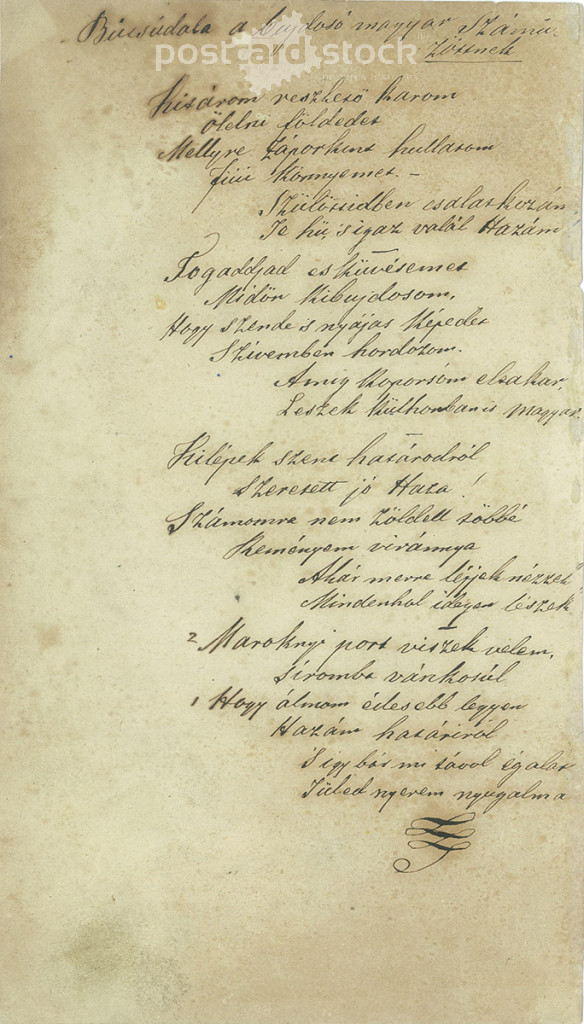 Bucsúdala a bujdosó magyar Számü-
zöttnek
post card stock
Kitárom reszkető karom
ölelni földedet
Mellyre záporkint hullatom
fiúi könnyemet. –
Szülöttidben csalatkozám
Te hű, s igaz valál Hazám
Fogaddjad esküvésemet
Midőn kibujdosom,
Hogy szende s nyájas képedet
Szivemben hordozom.
Amig koporsóm elzakar,
Leszek külhonban is magyar.
Kilépek szent határodról
Szeretett jó Haza!
Számomra nem zöldell többé
Reményem viránnya
Akár merre lépjek nézzek
Mindenhol idegen lészek
2 Maroknyi port viszek velem,
Siromba vánkosúl
1 Hogy álmom édesebb legyen
Hazám határiról
S igy bár mi távol égalat
Tüled nyerem nyugalma